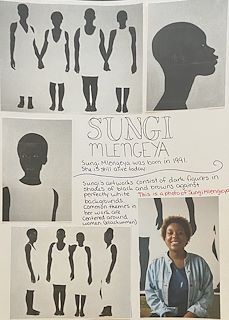 SUNGI
MLENGEYA
Sungi Mlengeya was born in 1991.
She is still alive today
Sungi's artworks consist of dark figures in
shades of black and browns against
perfectly white
This is a photo of Sungi Mlengeya
backgrounds.
Common themes in
her work are
centered around
women (blackwomen)